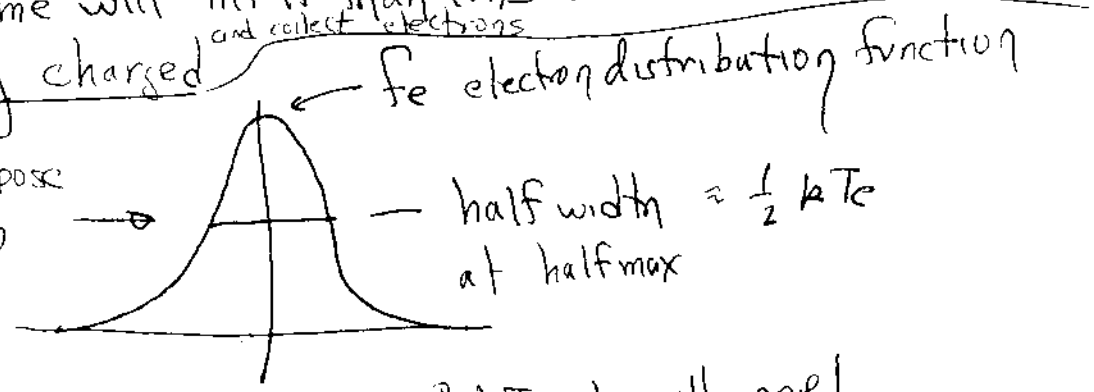 me will
and collect electrons
charged
fe electron distribution function
pose
half width ≈ 1/2 kTe
at half max